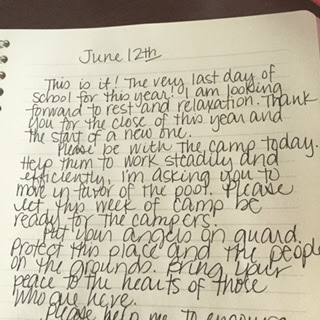 June 12th
This is it! The very last day of
school for this year! I am looking
forward to rest and relaxation. Thank
you for the close of this year and
the start of a new one.
Please be with the camp today.
Help them to work steadily and
efficiently, I'm asking you to
move in favor of the pool. Please
let this week of camp be
ready for the campers.
Put your angels on guard.
Protect this place and the people
on the grounds. Bring your
peace to the hearts of those
who are here.
Please help me to encourage